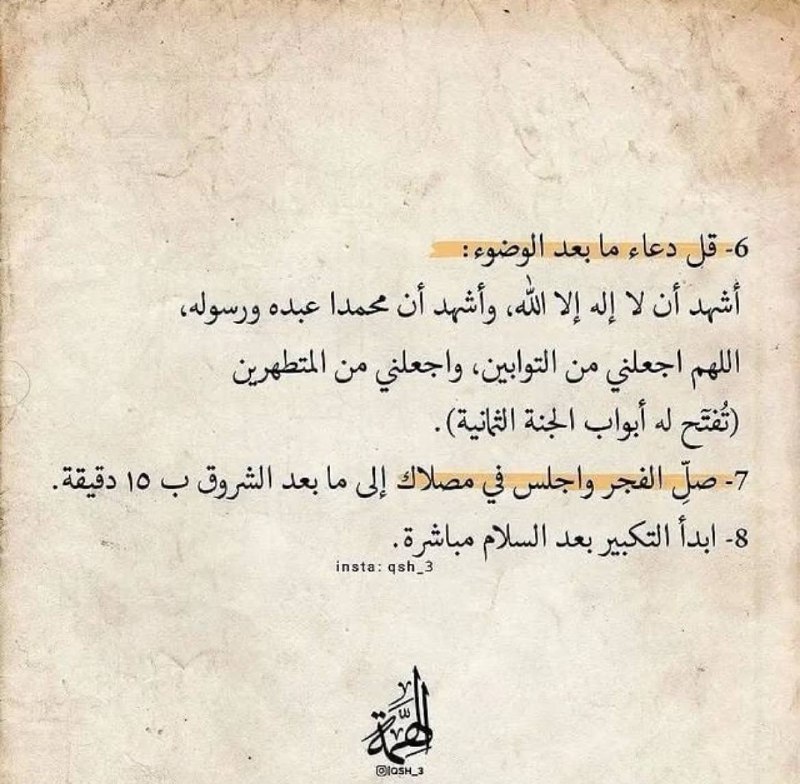 6- قل دعاء ما بعد الوضوء:
أشهد أن لا إله إلا الله، وأشهد أن محمدا عبده ورسوله،
اللهم اجعلني من التوابين، واجعلني من المتطهرين
(تُفتَح له أبواب الجنة الثمانية).
7- صلِّ الفجر واجلس في مصلاك إلى ما بعد الشروق ب ١٥ دقيقة.
8- ابدأ التكبير بعد السلام مباشرة.
insta: qsh_3
الهمّة
QSH_3